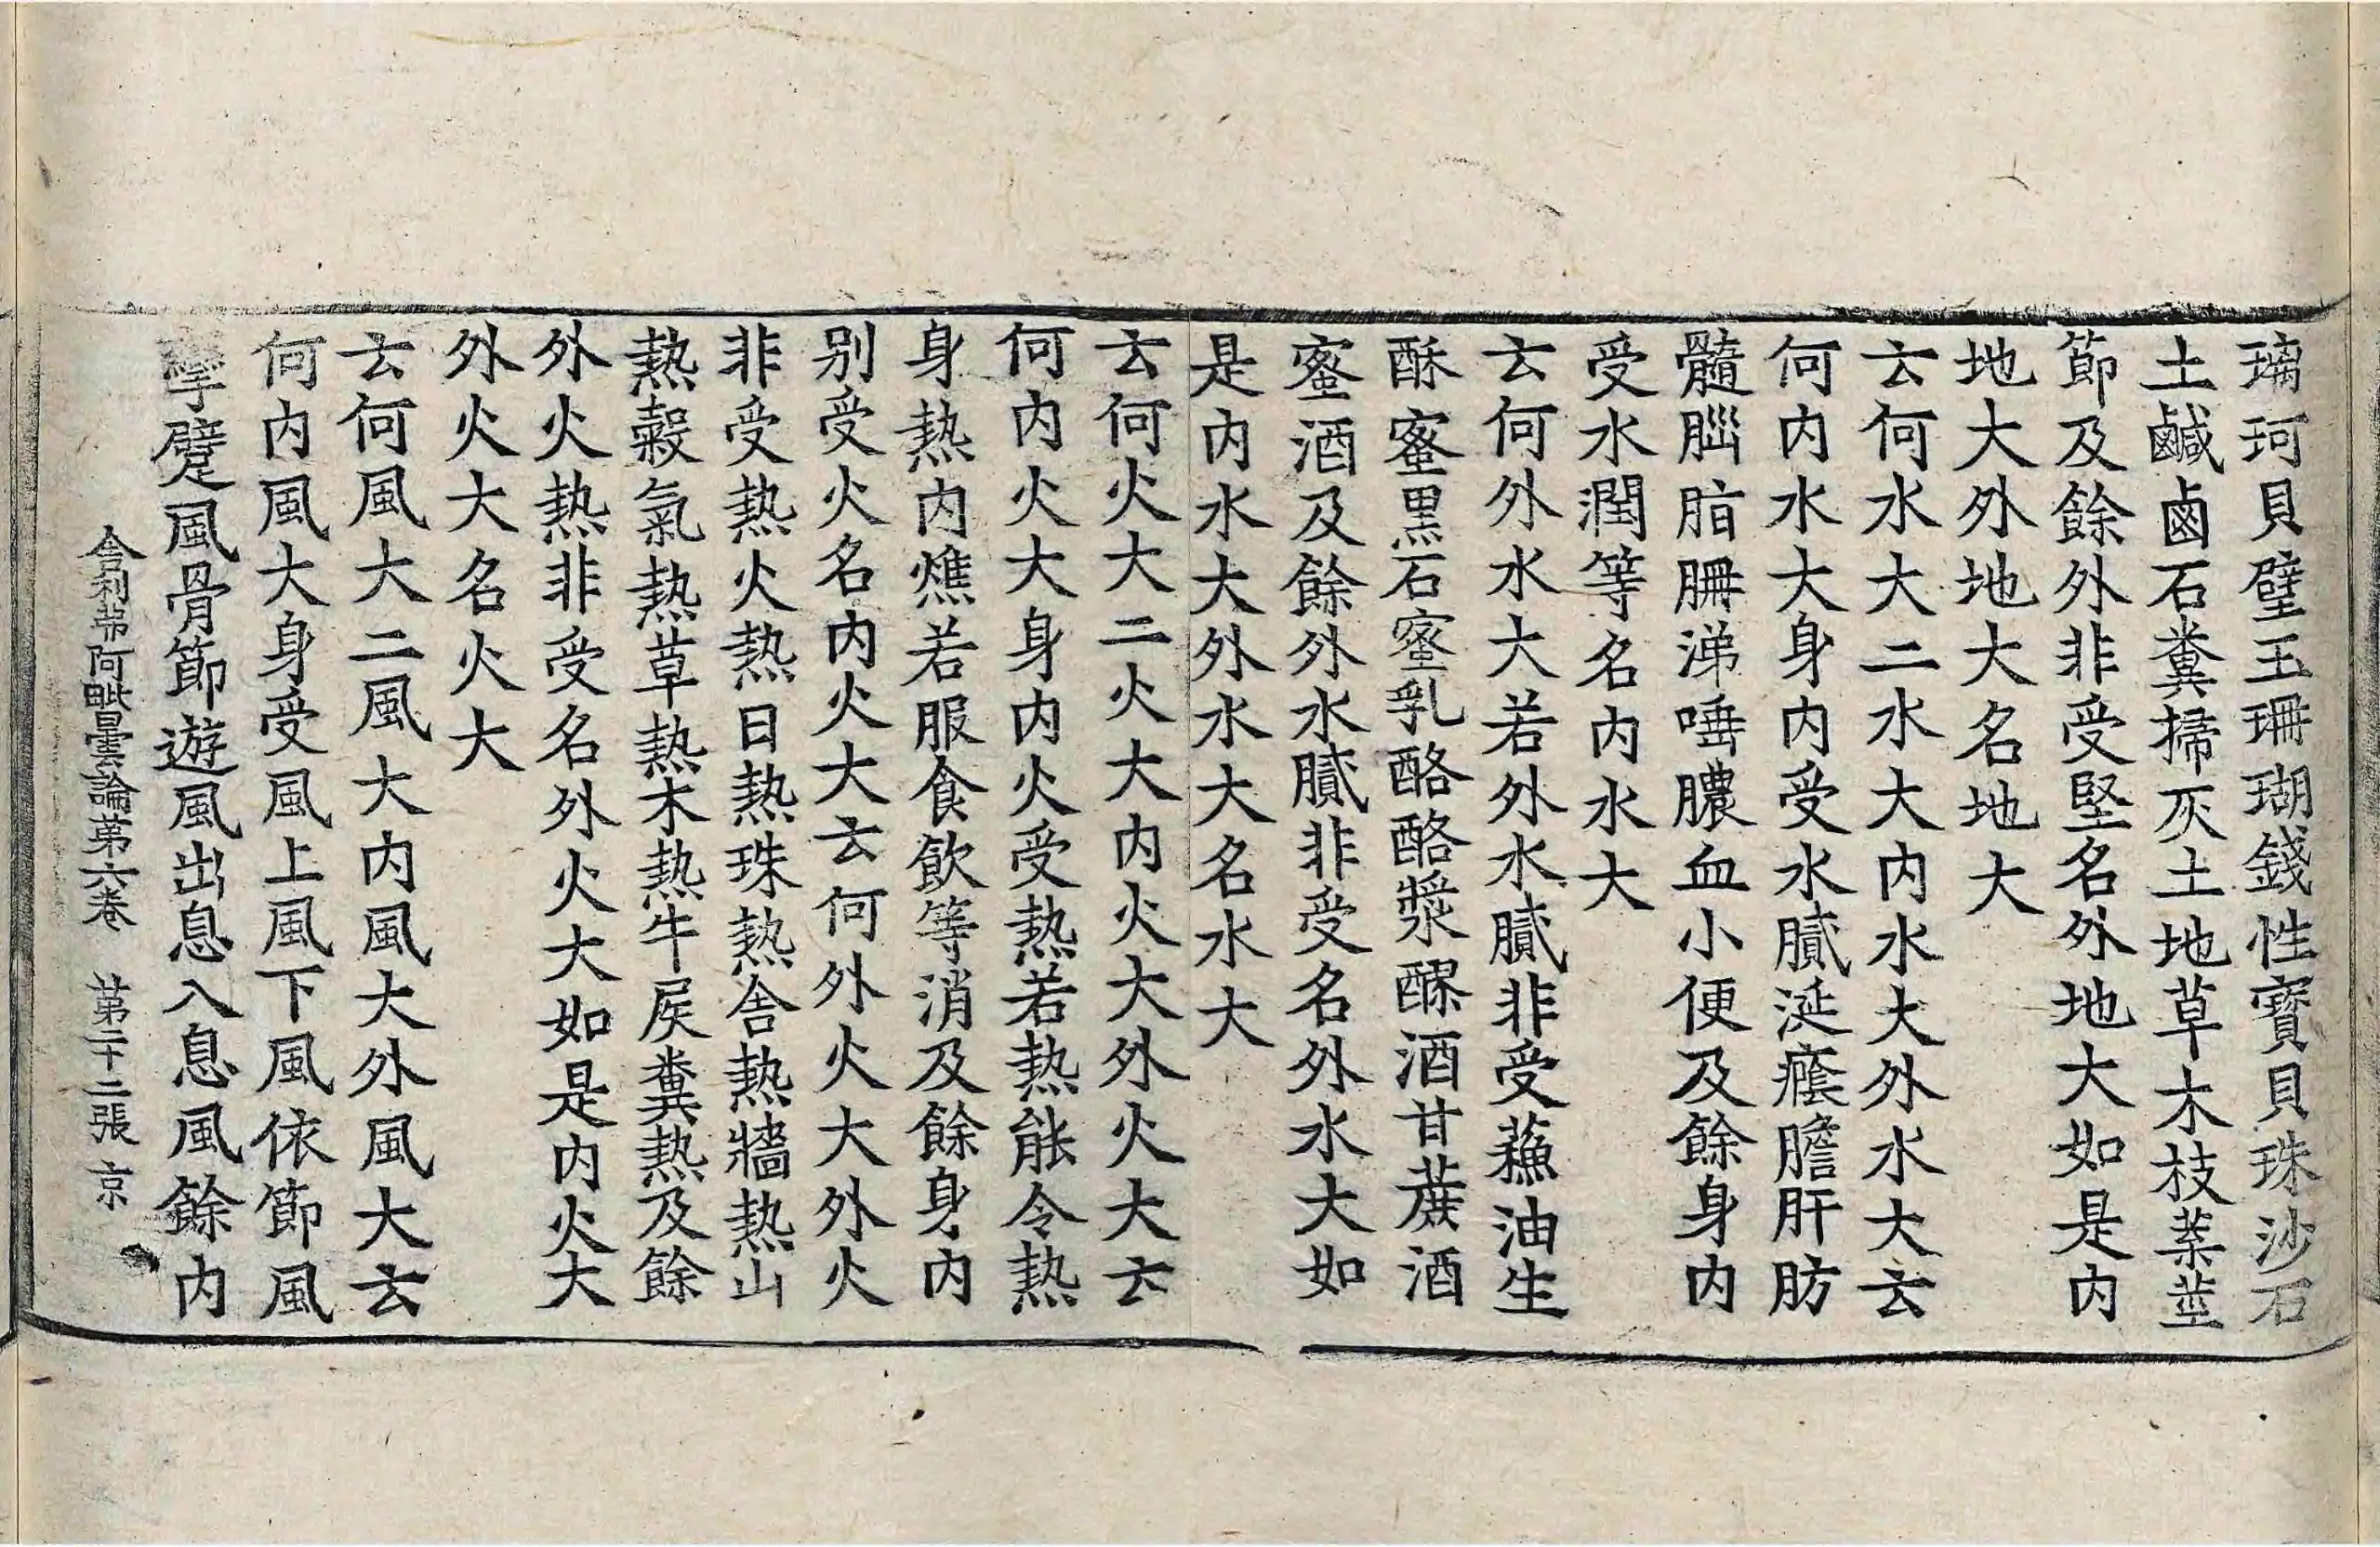 璃珂貝璧玉珊瑚錢性寶貝珠沙石
土鹹鹵石糞掃灰土地草木枝葉莖
節及餘外非受堅名外地大如是内
地大外地大名地大
云何水大二水大内水大外水大云
何内水大身内受水膩涎癊膽肝肪
髓腦脂𦙱涕唾膿血小便及餘身内
受水潤等名内水大
云何外水大若外水膩非受蘓油生
酥蜜黒石蜜乳酪酪漿醪酒甘蔗酒
蜜酒及餘外水膩非受名外水大如
是内水大外水大名水大
云何火大二火大内火大外火大云
何内火大身内火受熱若熱能令熱
身熱内燋若服食飲等消及餘身内
别受火名内火大云何外火大外火
非受熱火熱日熱珠熱舍熱牆熱山
熱穀氣熱草熱木熱牛屎糞熱及餘
外火熱非受名外火大如是内火大
外火大名火大
云何風大二風大内風大外風大云
何内風大身受風上風下風依節風
攣躄風骨節遊風出息入息風餘内
舍利弗阿毗曇論第六卷 第二十二張 京